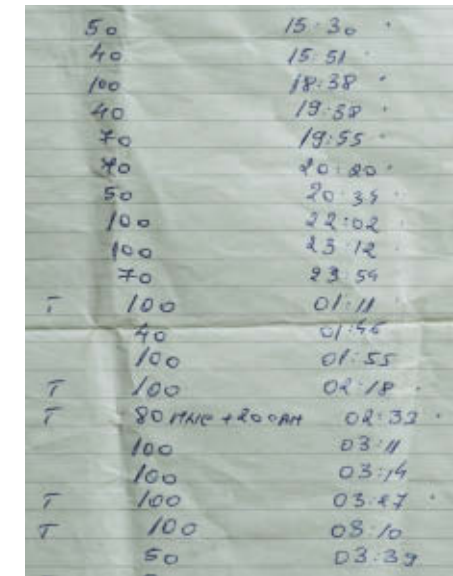 50 15:30
40 15:51
100 18:38
40 19:38
70 19:55
70 20:20
50 20:34
100 22:02
100 23:12
70 23:54
T 100 01:11
40 01:46
100 01:55
T 100 02:18
T 80 02:33
100 03:11
100 03:14
T 100 03:27
T 100 03:10
50 03:39